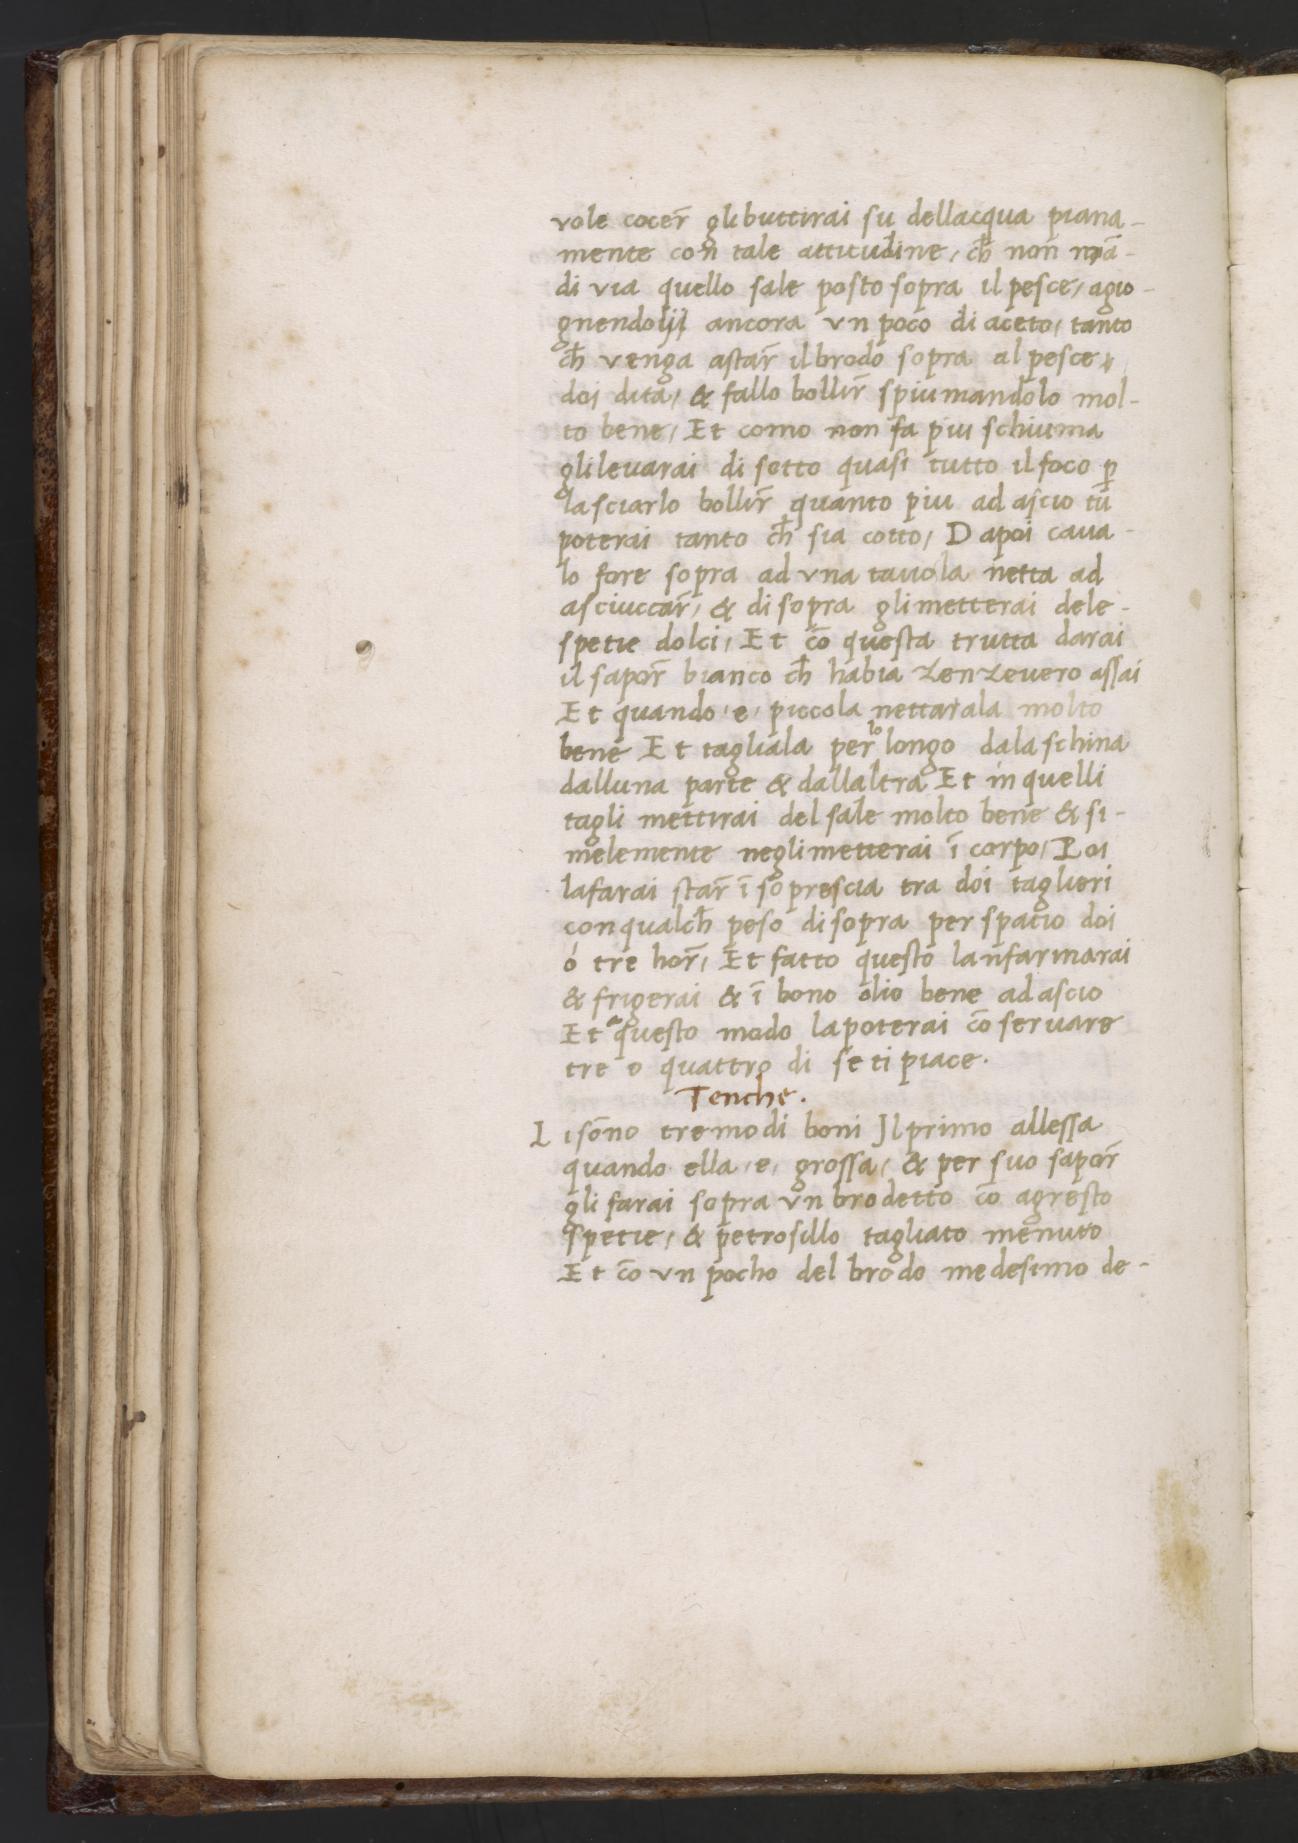 vole cocer̄ gli buttirai su dellacqua piana-
mente con tale attitudine, ch̄ non mā-
di via quello sale posto sopra il pesce, agio-
gnendo ancora vn poco di aceto, tanto
ch̄ venga astar̄ il brodo sopra al pesce
doi dita, & fallo bollir̄ spiumandolo mol-
to bene, Et como non fa piu schiuma
gli levarai di sotto quasi tutto il foco ꝑ
lasciarlo bollir̄ quanto piu ad ascio tu
poterai tanto ch̄ sia cotto, Dapoi caua-
lo fore sopra ad vna tauola netta ad
asciuccar̄, & di sopra gli metterai dele-
spetie dolci, Et cō questa trutta darai
il sapor̄ bianco ch̄ habia zenzeuero assai
Et quando ,e, piccola nettarala molto
bene Et tagliala per lo longo dala schina
dalluna parte & dallaltra Et in quelli
tagli mettirai del sale molto bene & si-
melemente negli metterai ī corpo, Poi
la farai star̄ ī soprescia tra doi taglieri
con qualch̄ peso di sopra per spatio doi
ó tre hor̄, Et fatto questo la nfarinarai
& frigerai & ī bono olio bene ad ascio
Et a questo modo la poterai cōservare
tre o quattro di se ti piace.
Tenche.
Li sono tre modi boni Il primo allessa
quando ella ,e, grossa, & per suo sapor̄
gli farai sopra vn brodetto cō agresto
spetie, & petrosillo tagliato menuto
Et cō vn pocho del brodo medesimo de-